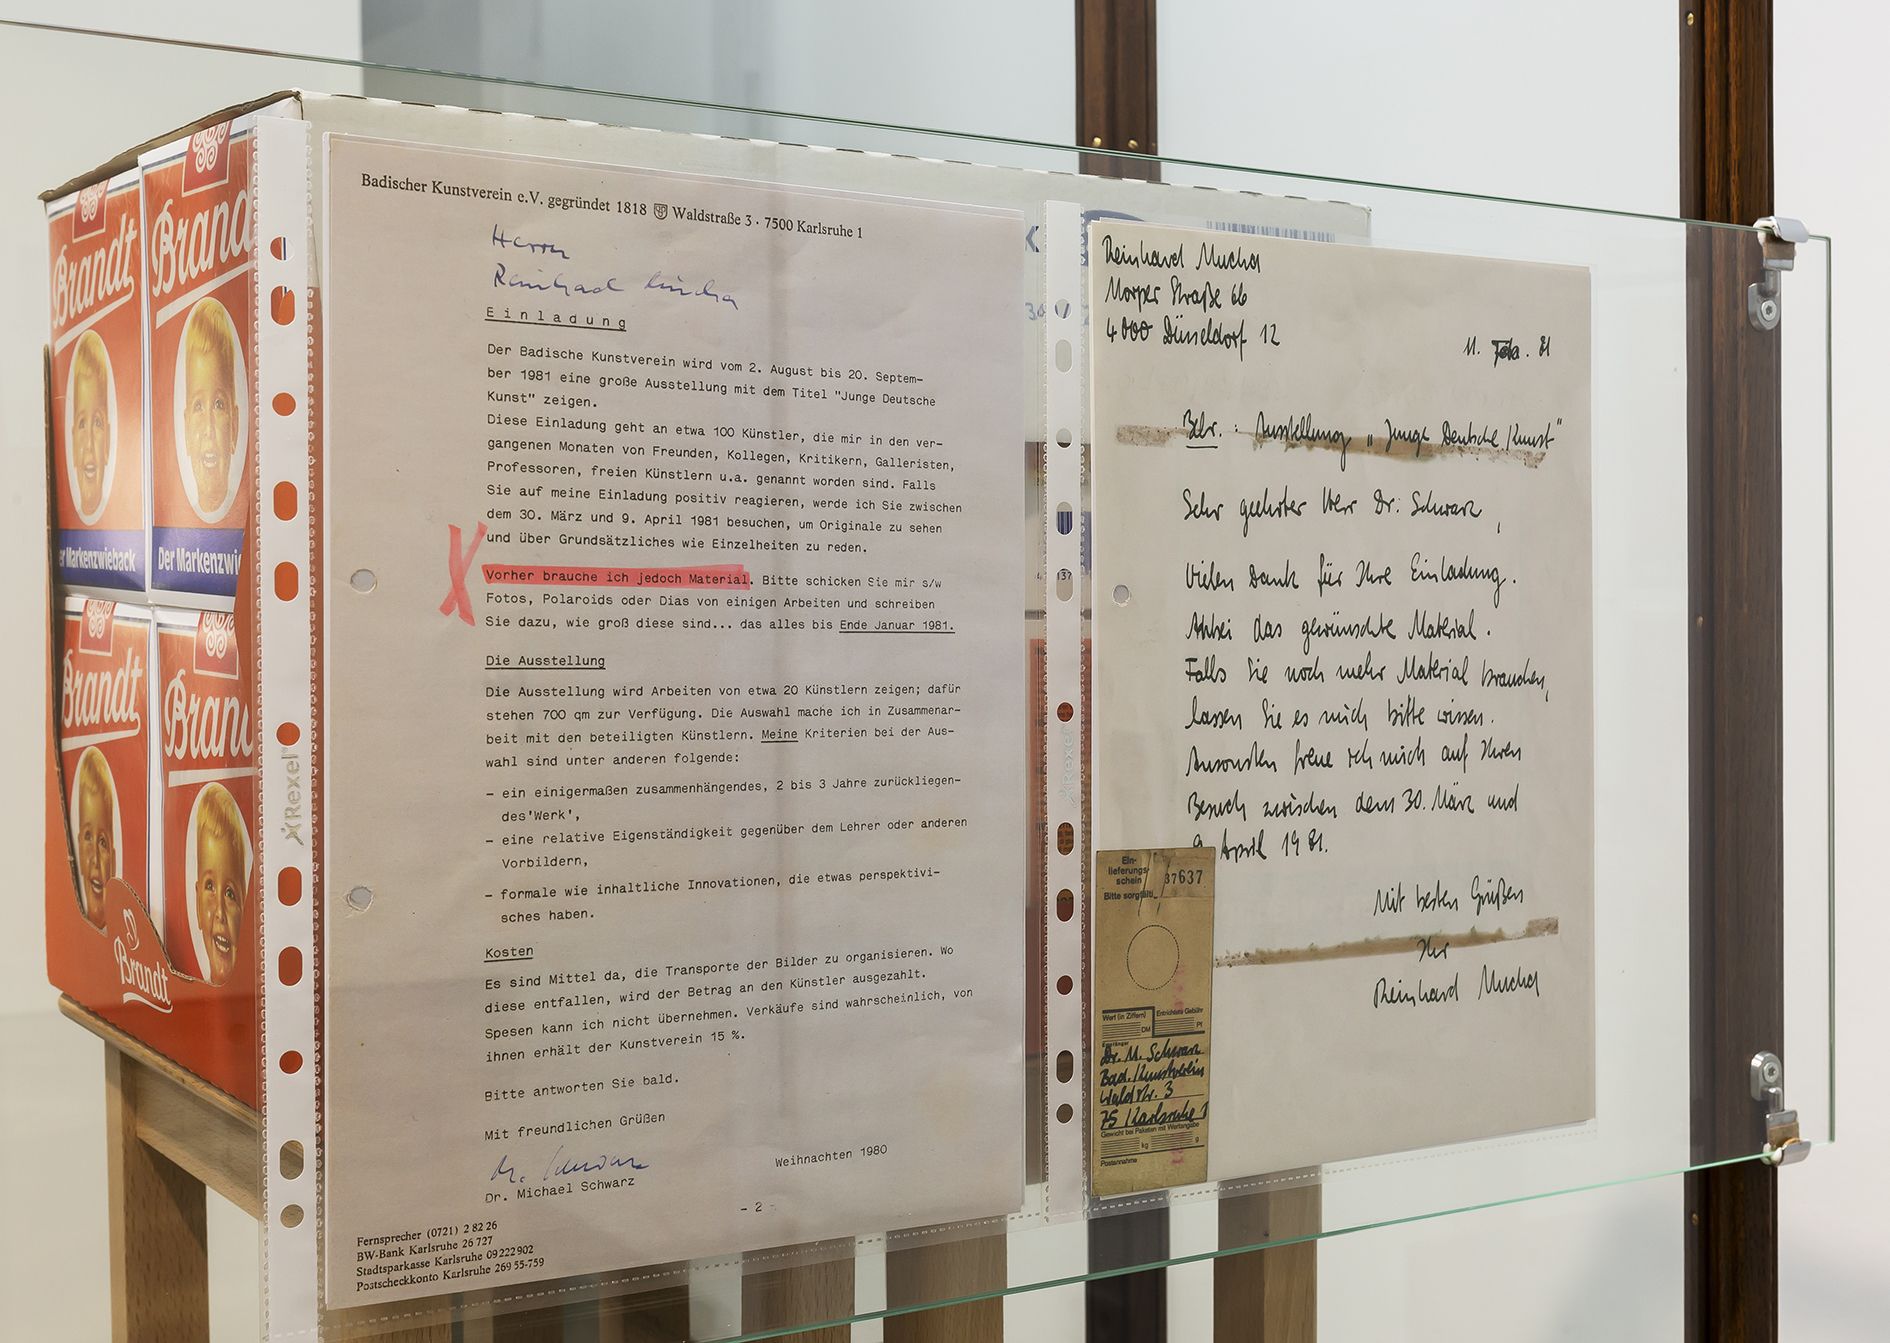 Brandt
Brandt
Der Markenzwieback
Brandt
Brandt
Rexel
Badischer Kunstverein e.V. gegründet 1818 Waldstraße 3 · 7500 Karlsruhe 1
Herrn
Reinhard Mucha
Einladung
Der Badische Kunstverein wird vom 2. August bis 20. Septem-
ber 1981 eine große Ausstellung mit dem Titel "Junge Deutsche
Kunst" zeigen.
Diese Einladung geht an etwa 100 Künstler, die mir in den ver-
gangenen Monaten von Freunden, Kollegen, Kritikern, Galleristen,
Professoren, freien Künstlern u.a. genannt worden sind. Falls
Sie auf meine Einladung positiv reagieren, werde ich Sie zwischen
dem 30. März und 9. April 1981 besuchen, um Originale zu sehen
und über Grundsätzliches wie Einzelheiten zu reden.
Vorher brauche ich jedoch Material. Bitte schicken Sie mir s/w
Fotos, Polaroids oder Dias von einigen Arbeiten und schreiben
Sie dazu, wie groß diese sind... das alles bis Ende Januar 1981.
Die Ausstellung
Die Ausstellung wird Arbeiten von etwa 20 Künstlern zeigen; dafür
stehen 700 qm zur Verfügung. Die Auswahl mache ich in Zusammenar-
beit mit den beteiligten Künstlern. Meine Kriterien bei der Aus-
wahl sind unter anderen folgende:
- ein einigermaßen zusammenhängendes, 2 bis 3 Jahre zurückliegen-
des'Werk',
- eine relative Eigenständigkeit gegenüber dem Lehrer oder anderen
Vorbildern,
- formale wie inhaltliche Innovationen, die etwas perspektivi-
sches haben.
Kosten
Es sind Mittel da, die Transporte der Bilder zu organisieren. Wo
diese entfallen, wird der Betrag an den Künstler ausgezahlt.
Spesen kann ich nicht übernehmen. Verkäufe sind wahrscheinlich, von
ihnen erhält der Kunstverein 15 %.
Bitte antworten Sie bald.
Mit freundlichen Grüßen
Weihnachten 1980
Dr. Schwarz
Dr. Michael Schwarz
- 2 -
Fernsprecher (0721) 2 82 26
BW-Bank Karlsruhe 26 727
Stadtsparkasse Karlsruhe 09 222 902
Postscheckkonto Karlsruhe 269 55-759
Rexel
Reinhard Mucha
Morper Straße 66
4000 Düsseldorf 12
11. Feb. 81
Betr.: Ausstellung "Junge Deutsche Kunst"
Sehr geehrter Herr Dr. Schwarz,
Vielen Dank für Ihre Einladung.
Anbei das gewünschte Material.
Falls Sie noch mehr Material brauchen,
lassen Sie es mich bitte wissen.
Ansonsten freue ich mich auf Ihren
Besuch zwischen dem 30. März und
9. April 1981.
Mit besten Grüßen
Ihr
Reinhard Mucha
Ein-
lieferungs-
schein
37637
Bitte sorgfält
Wert (in Ziffern)
Entrichtete Gebühr
DM
Pf
Empfänger
Dr. M. Schwarz
Bad. Kunstverein
Waldstr. 3
75 Karlsruhe 1
Gewicht bei Paketen mit Wertangabe
kg
g
Postannahme